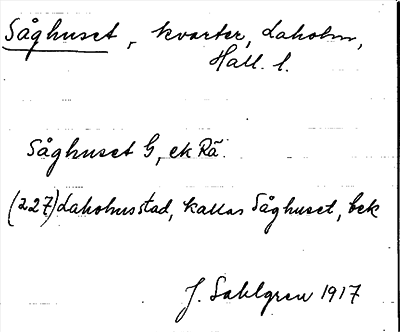 Såghuset, kvarter, Laholm,
Hall. l.
Såghuset G, ek Rä.
(227) Laholms stad, kallas Såghuset, bek
J. Sahlgren 1917